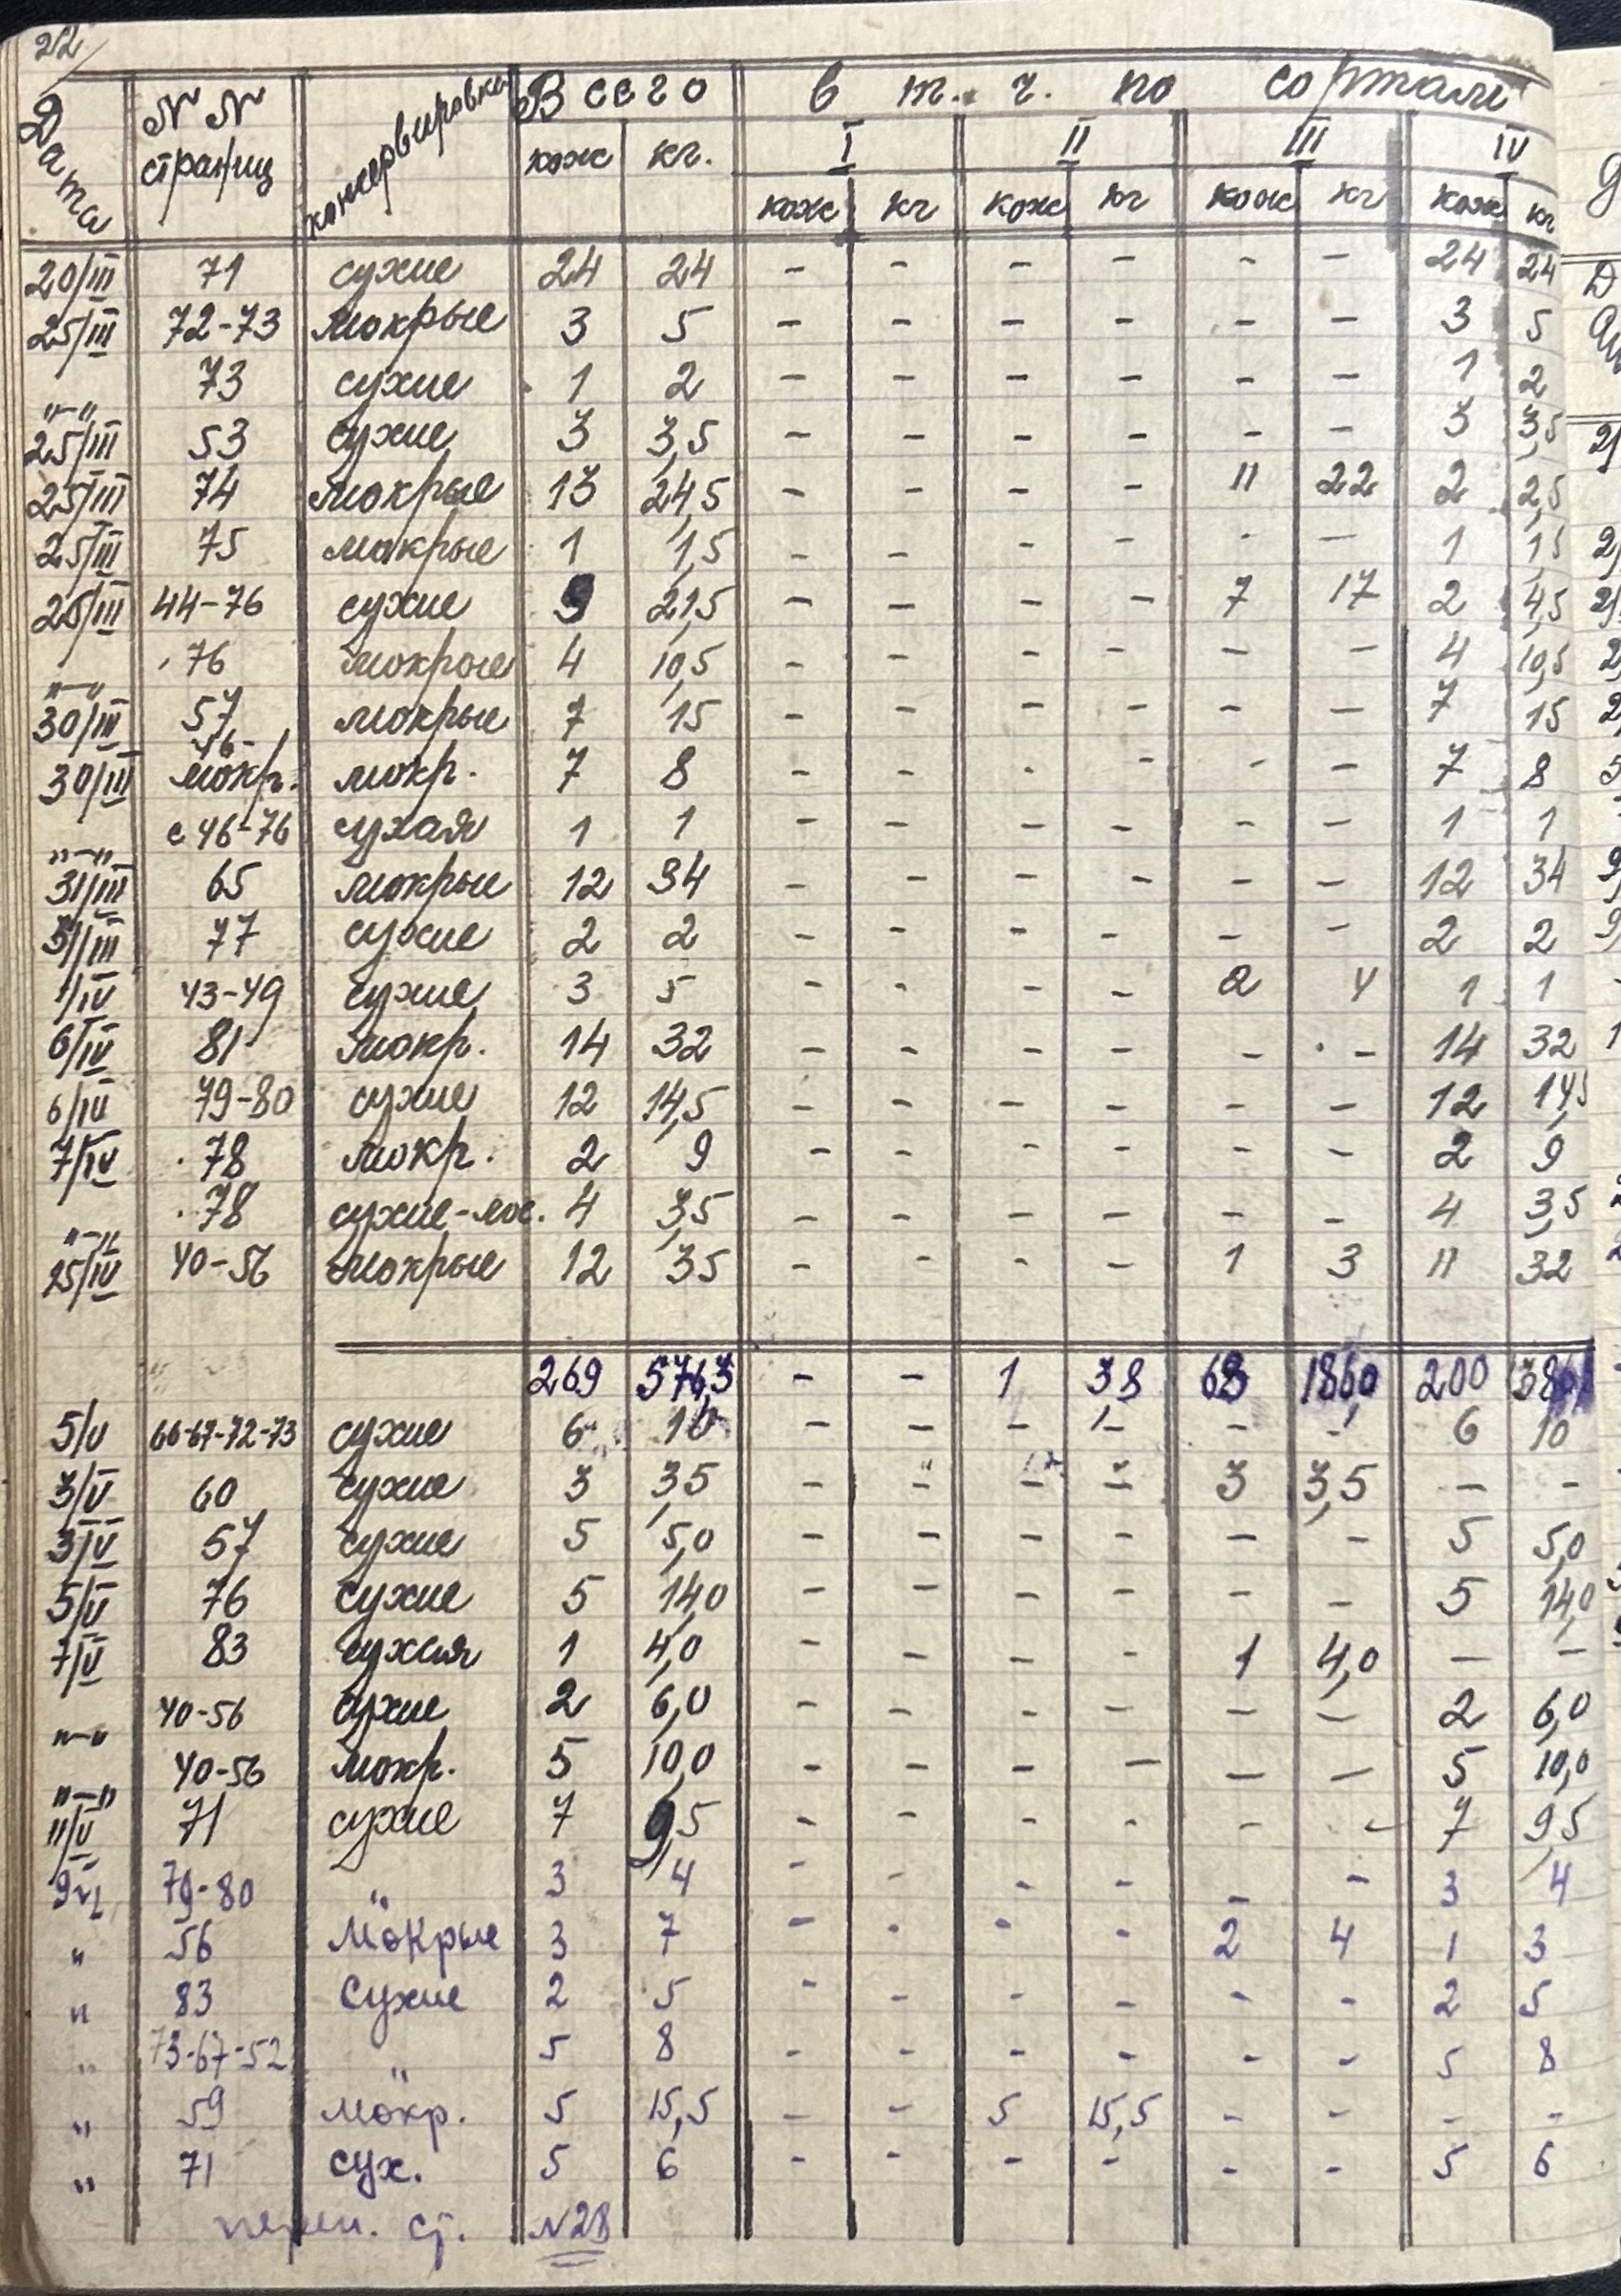 22
Дата N N страниц консервировка Всего в т. ч. по сортам
кож кг. I II III IV
кож кг кож кг кож кг кож кг
20/III 71 сухие 24 24 - - - - - - 24 24
25/III 72-73 мокрые 3 5 - - - - - - 3 5
"-" 73 сухие 1 2 - - - - - - 1 2
25/III 53 сухие 3 3,5 - - - - - - 3 3,5
25/III 74 мокрые 13 24,5 - - - - 11 22 2 2,5
25/III 75 мокрые 1 1,5 - - - - - - 1 1,5
25/III 44-76 сухие 9 21,5 - - - - 7 17 2 4,5
"-" 76 мокрые 4 10,5 - - - - - - 4 10,5
30/III 57 мокрые 7 15 - - - - - - 7 15
30/III 46- мокр. мокр. 7 8 - - - - - - 7 8
"-" с 46-76 сухая 1 1 - - - - - - 1 1
31/III 65 мокрые 12 34 - - - - - - 12 34
31/III 77 сухие 2 2 - - - - - - 2 2
1/IV 43-49 сухие 3 5 - - - - 2 4 1 1
6/IV 81 мокр. 14 32 - - - - - - 14 32
6/IV 79-80 сухие 12 14,5 - - - - - - 12 14,5
7/IV 78 мокр. 2 9 - - - - - - 2 9
"-" 78 сухие-лос. 4 3,5 - - - - - - 4 3,5
25/IV 40-56 мокрые 12 35 - - - - 1 3 11 32
269 576,3 - - 1 3,8 68 186,0 200
5/V 66-67-72-73 сухие 6 10 - - - - - - 6 10
3/V 60 сухие 3 3,5 - - - - 3 3,5 - -
3/V 57 сухие 5 5,0 - - - - - - 5 5,0
5/V 76 сухие 5 14,0 - - - - - - 5 14,0
7/V 83 сухая 1 4,0 - - - - 1 4,0 - -
"-" 40-56 сухие 2 6,0 - - - - - - 2 6,0
"-" 40-56 мокр. 5 10,0 - - - - - - 5 10,0
11/V 71 сухие 7 9,5 - - - - - - 7 9,5
79-80 " 3 4 - - - - - - 3 4
" 56 Мокрые 3 7 - - - - 2 4 1 3
" 83 Сухие 2 5 - - - - - - 2 5
" 73-67-52 " 5 8 - - - - - - 5 8
" 59 мокр. 5 15,5 - - 5 15,5 - - - -
" 71 сух. 5 6 - - - - - - 5 6
перен. ст. N28